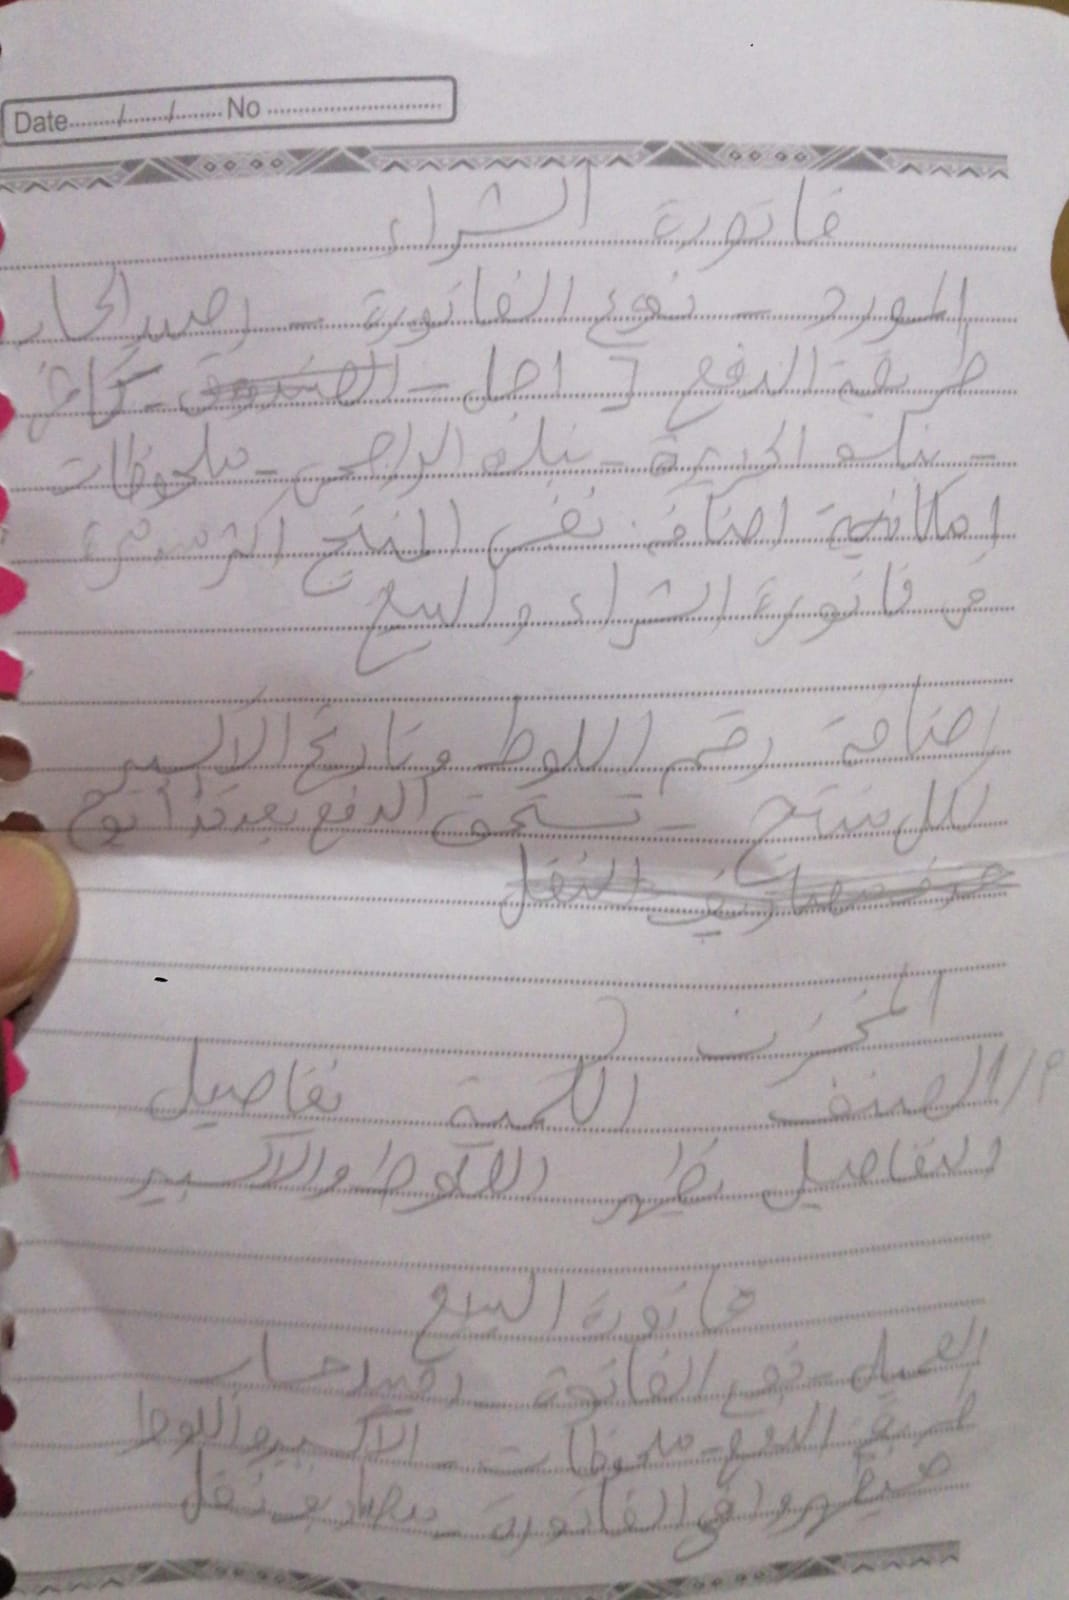 Date......./......./....... No .......................
فاتورة الشراء
المورد - نوع الفاتورة - رصيد الحساب
طريقة الدفع [ اجل - الصندوق -
- بنك الجزيرة - بنك الراجحي - ملحوظات
امكانية اضافة نفس المنتج اكثر من مرة
في فاتورة الشراء والبيع
اضافة رقم اللوط وتاريخ الاكسبير
لكل منتج - تستحق الدفع بعد
صرف مصاريف النقل
المخزن
م / الصنف الكمية تفاصيل
التفاصيل تظهر اللوط والاكسبير
فاتورة البيع
العميل - نوع الفاتورة رصيد حساب
طريقة الدفع - ملحوظات - الاكسبير واللوط
يظهروا في الفاتورة - مصاريف نقل